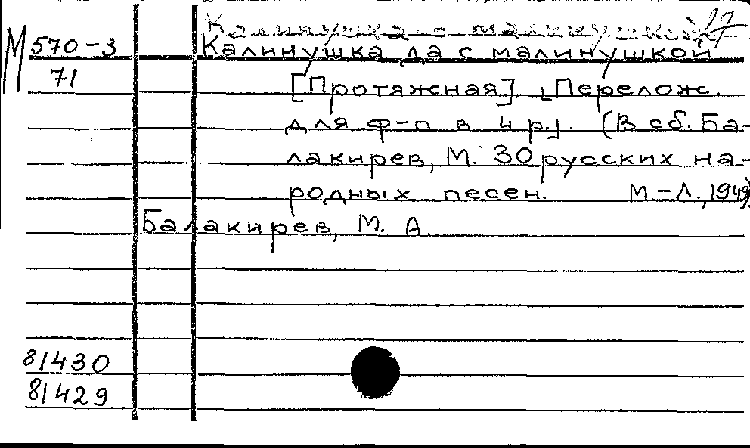 Калинушка с малинушкой 17
М 570-3 Калинушка да с малинушкой
71 [Протяжная] [Перелож.
для ф-п в 4 р]. (В сб. Ба-
лакирев, М. 30 русских на-
родных песен. М-Л., 1949)
Балакирев, М. А
81430
81429